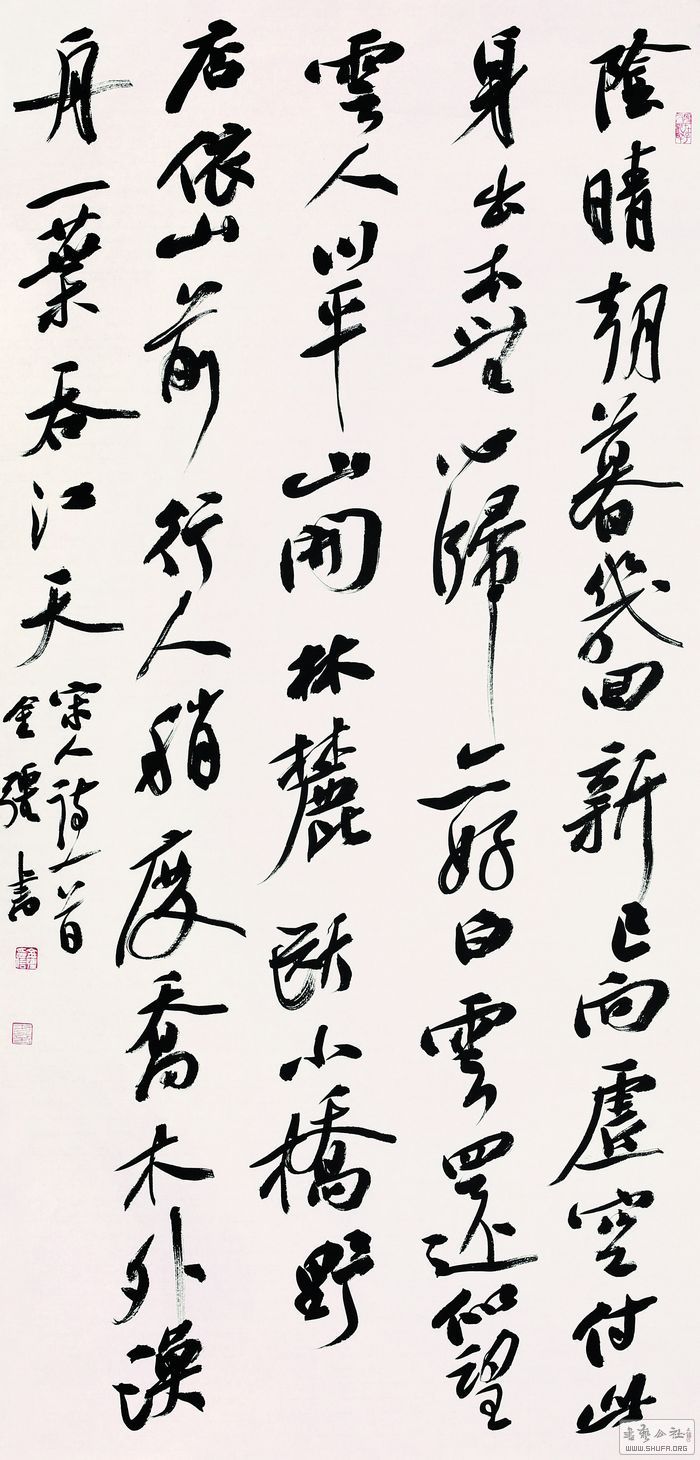 陰晴朝暮幾回新已向虛空付此
身出本無心歸亦好白雲還似望
雲人川平山開林麓斷小橋野
店依山前行人稍度喬木外漁
舟一葉吞江天
宋人詩二首
金強書
WWW.SHUFA.ORG